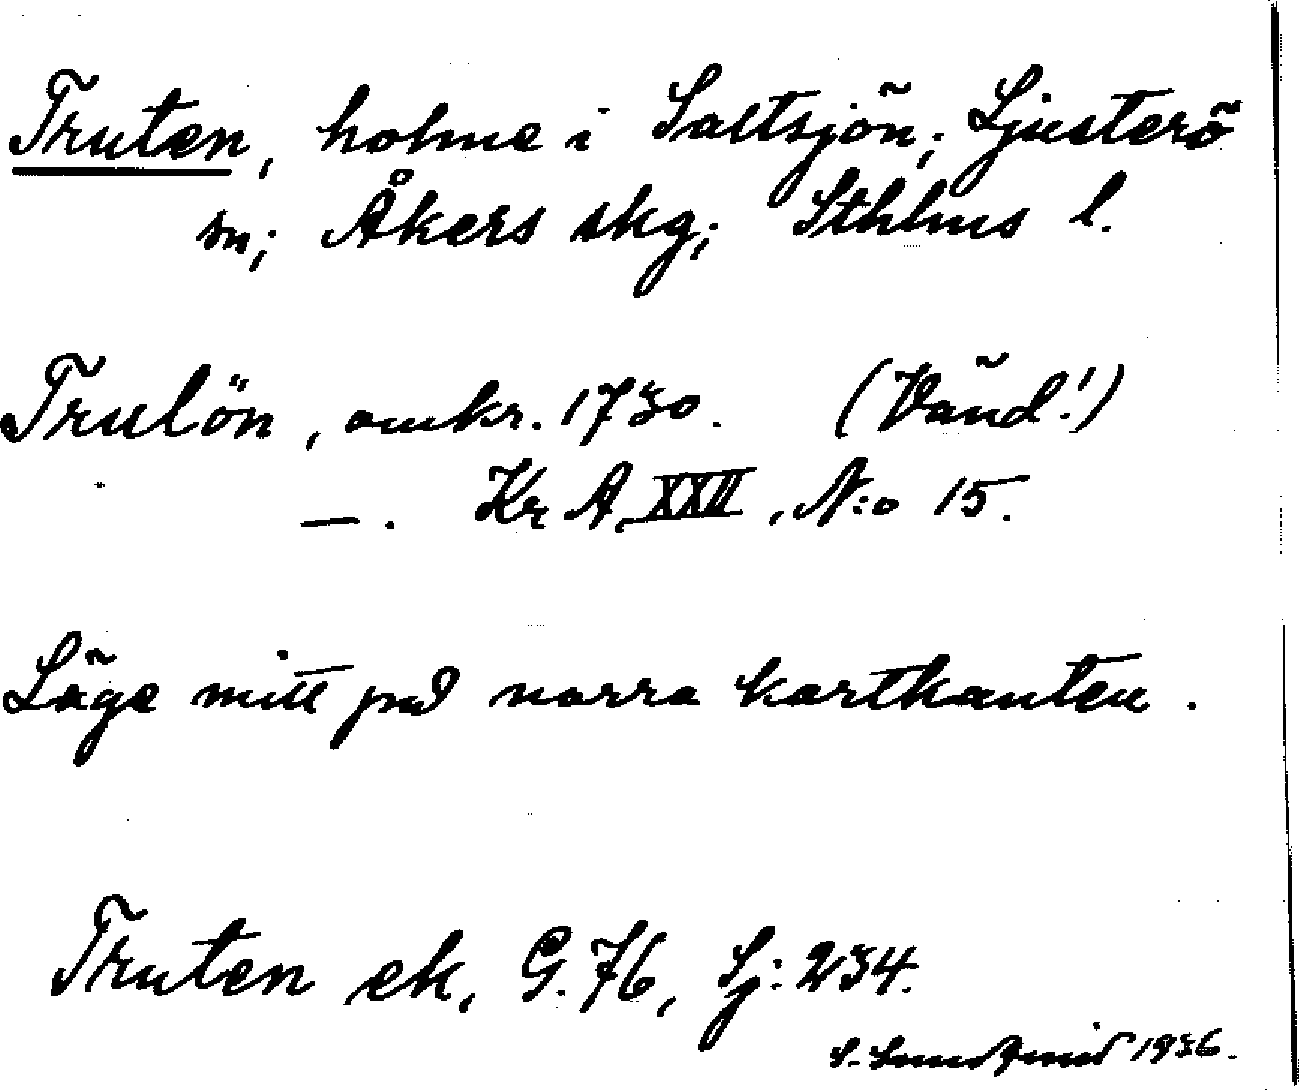 Truten, holme i Saltsjön; Ljusterö
sn; Åkers skg; Sthlms l.
Trulön, omkr. 1730. (Vänd!)
—. Kr A, XXII, N:o 15.
Läge mitt på norra kartkanten.
Truten ek, G. 76, Sj: 234.
1936.